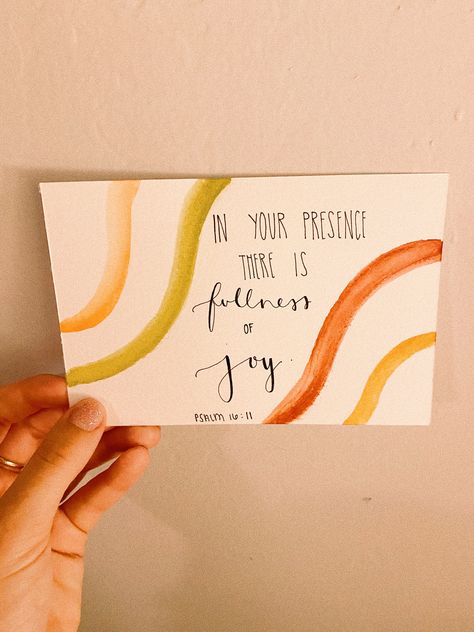 IN YOUR PRESENCE
THERE IS
fullness
OF
joy.
PSALM 16:11